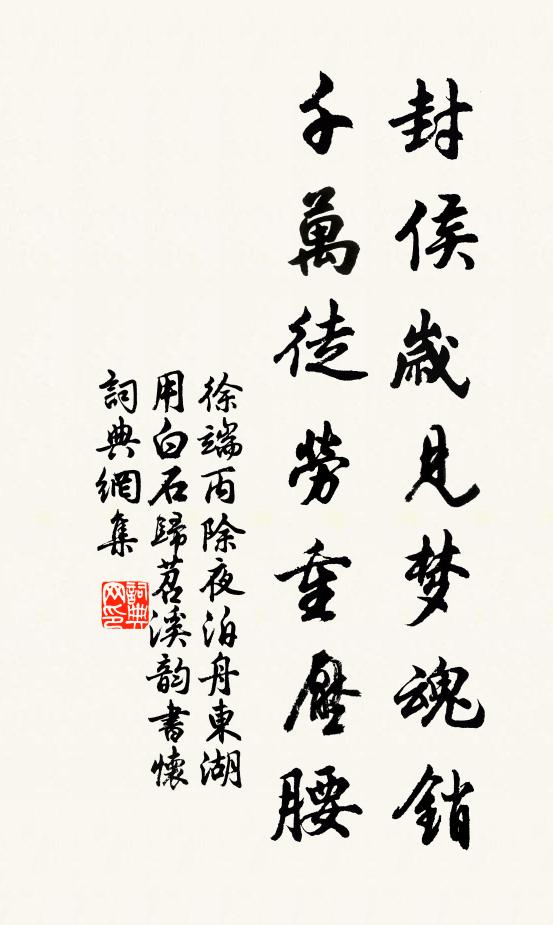 封侯歲見梦魂銷
千萬徒勞重壓腰
徐端丙除夜泊舟東湖
用白石歸苕溪韵書懷
詞典網集
詞典网印